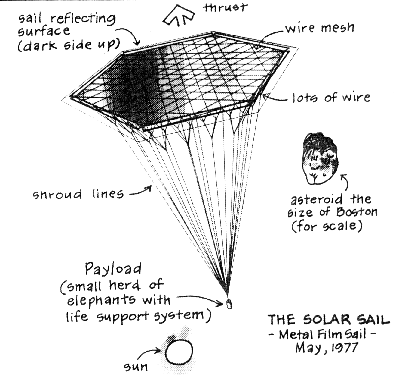 sail reflecting
surface
(dark side up)
thrust
wire mesh
lots of wire
shroud lines
asteroid the
size of Boston
(for scale)
Payload
(small herd of
elephants with
life support system)
sun
THE SOLAR SAIL
- Metal Film Sail -
May, 1977